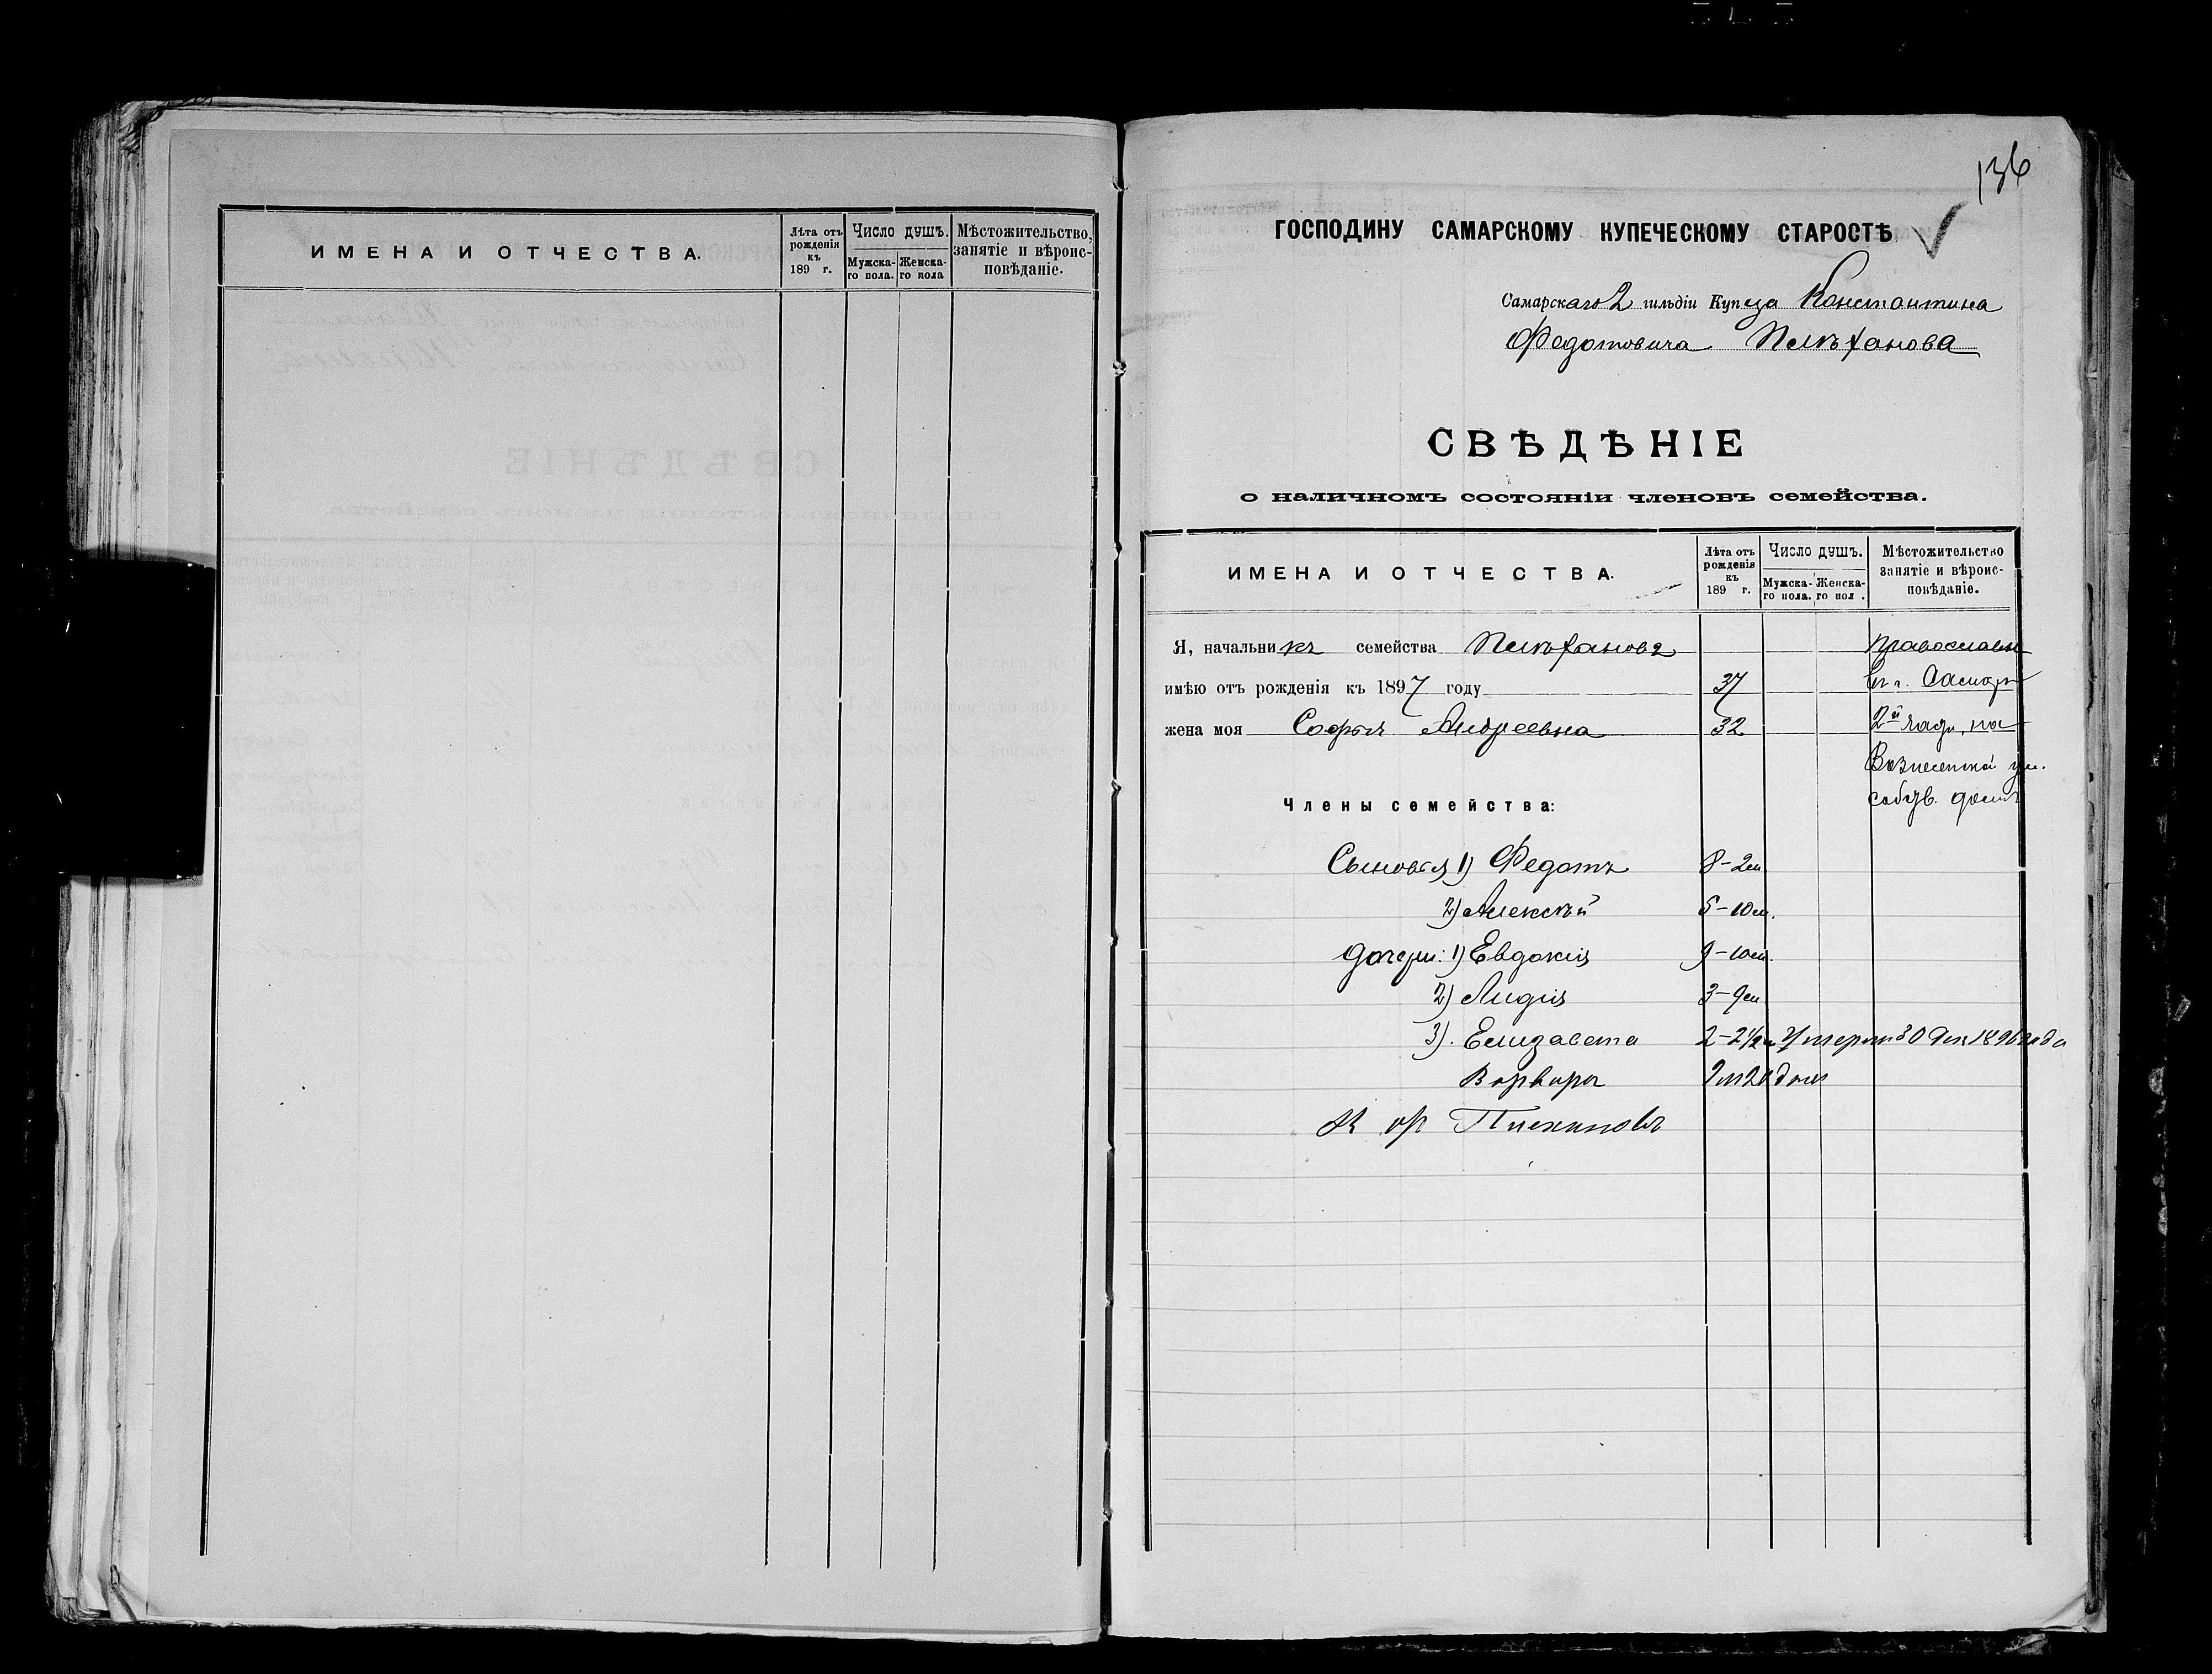 ИМЕНА И ОТЧЕСТВА.
Лѣта отъ рожденія къ 189 г.
Число душъ.
Мужска-го пола.
Женска-го пола
Мѣстожительство, занятіе и вѣроис-повѣданіе.
136
ГОСПОДИНУ САМАРСКОМУ КУПЕЧЕСКОМУ СТАРОСТѢ
Самарскаго 2 гильдіи Купца Константина
Федотовича
СВѢДѢНІЕ
о наличномъ состояніи членовъ семейства.
ИМЕНА И ОТЧЕСТВА.
Лѣта отъ рожденія къ 189 г.
Число душъ.
Мужска-го пола.
Женска-го пол .
Мѣстожительство занятіе и вѣроис-повѣданіе.
Я, начальникъ семейства
имѣю отъ рожденія къ 1897 году 37
жена моя Софья Андреевна 32
2й част, на
Вознесенской ул.
собств. домъ
Члены семейства:
Сыновья 1) Федотъ 8-2м
2) Алексѣй 5-10м.
дочери: 1) Евдокія 9-10м.
2) Лидія 3-9м
3). Елизавета 2-2½м Умерла 30 Дек 1896 года
Варвара